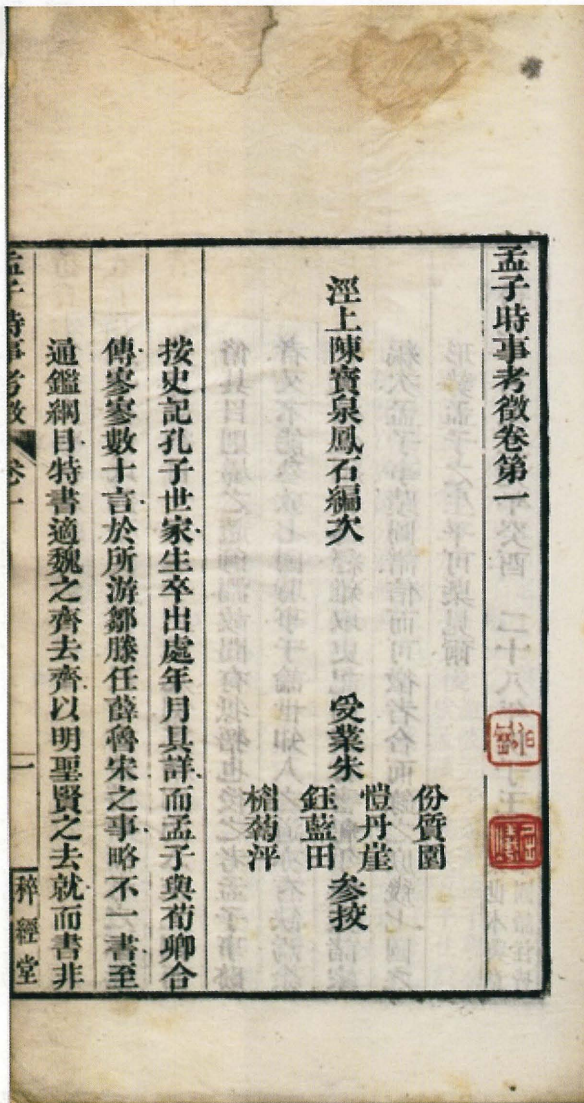 孟子時事考徵卷第一
涇上陳寶泉鳳石編次
受業朱
份質園
愷丹崖
鈺藍田
榗菊泙
參挍
按史記孔子世家生卒出處年月具詳而孟子與荀卿合
傳寥寥數十言於所游鄒滕任薛魯宋之事略不一書至
通鑑綱目特書適魏之齊去齊以明聖賢之去就而書非
孟子時事考徵
卷一
一
稡經堂